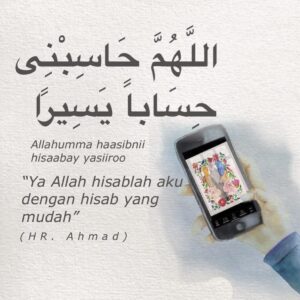 اللَّهُمَّ حَاسِبْنِى
حِسَاباً يَسِيرًا
Allahumma haasibnii
hisaabay yasiiroo
“Ya Allah hisablah aku
dengan hisab yang
mudah”
(HR. Ahmad)